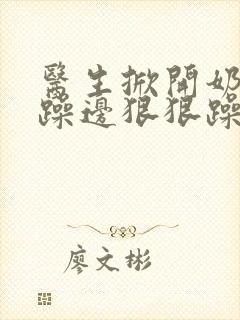 醫生掀開奶
躁邊狠狠躁
廖文彬